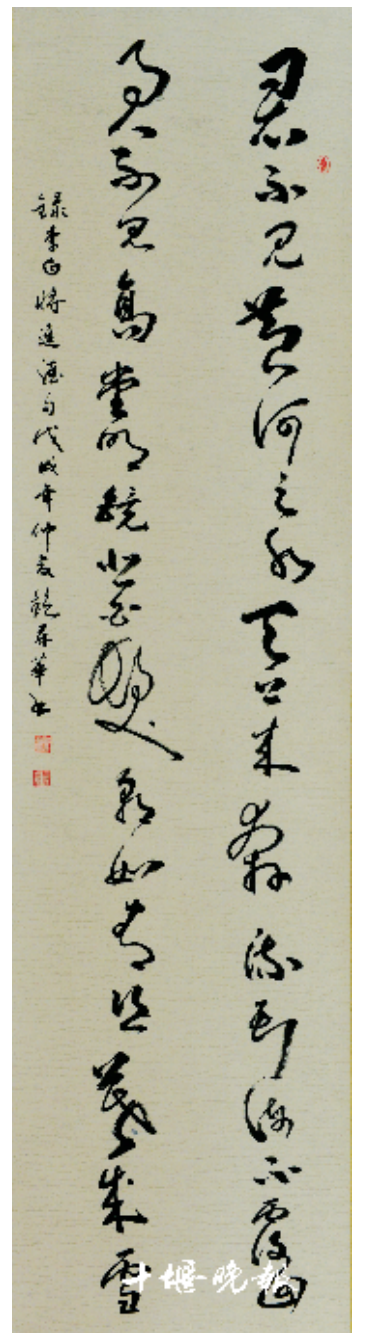 君不見黄河之水天上来奔流到海不覆回
君不見高堂明鏡悲白髮朝如青絲暮成雪
錄李白將進酒句戊戌年仲夏華書
十堰晚報